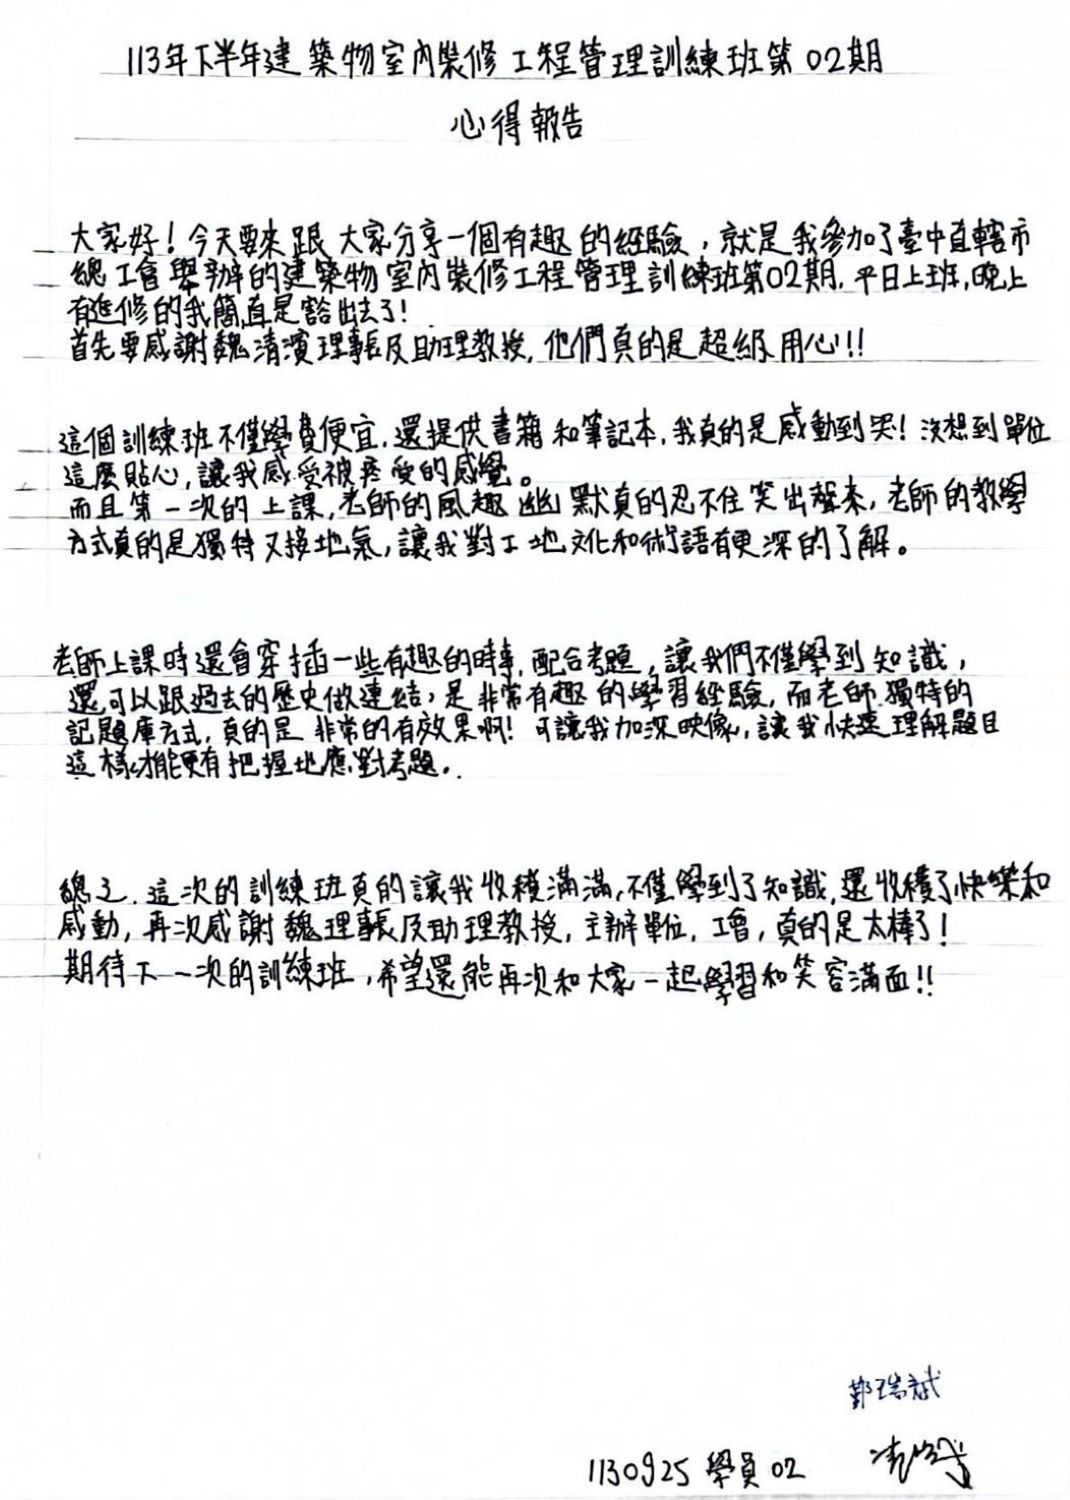 113年下半年建築物室內裝修工程管理訓練班第02期
心得報告
大家好!今天要來跟大家分享一個有趣的經驗,就是我參加了臺中直轄市
總工會舉辦的建築物室內裝修工程管理訓練班第02期,平日上班,晚上
有進修的我簡直是豁出去了!
首先要感謝魏清濱理事長及助理教授,他們真的是超級用心!!
這個訓練班不僅學費便宜,還提供書籍和筆記本,我真的是感動到哭!沒想到單位
這麼貼心,讓我感受被疼愛的感覺。
而且第一次的上課,老師的風趣幽默真的忍不住笑出聲來,老師的教學
方式真的是獨特又接地氣,讓我對工地文化和術語有更深的了解。
老師上課時還會穿插一些有趣的時事,配合考題,讓我們不僅學到知識,
還可以跟過去的歷史做連結,是非常有趣的學習經驗,而老師獨特的
記題庫方式,真的是非常的有效果啊!可讓我加深映像,讓我快速理解題目
這樣才能更有把握地應對考題。
總之,這次的訓練班真的讓我收穫滿滿,不僅學到了知識,還收穫了快樂和
感動,再次感謝魏理事長及助理教授,主辦單位,工會,真的是太棒了!
期待下一次的訓練班,希望還能再次和大家一起學習和笑容滿面!!
鄭瑞斌
1130925 學員02